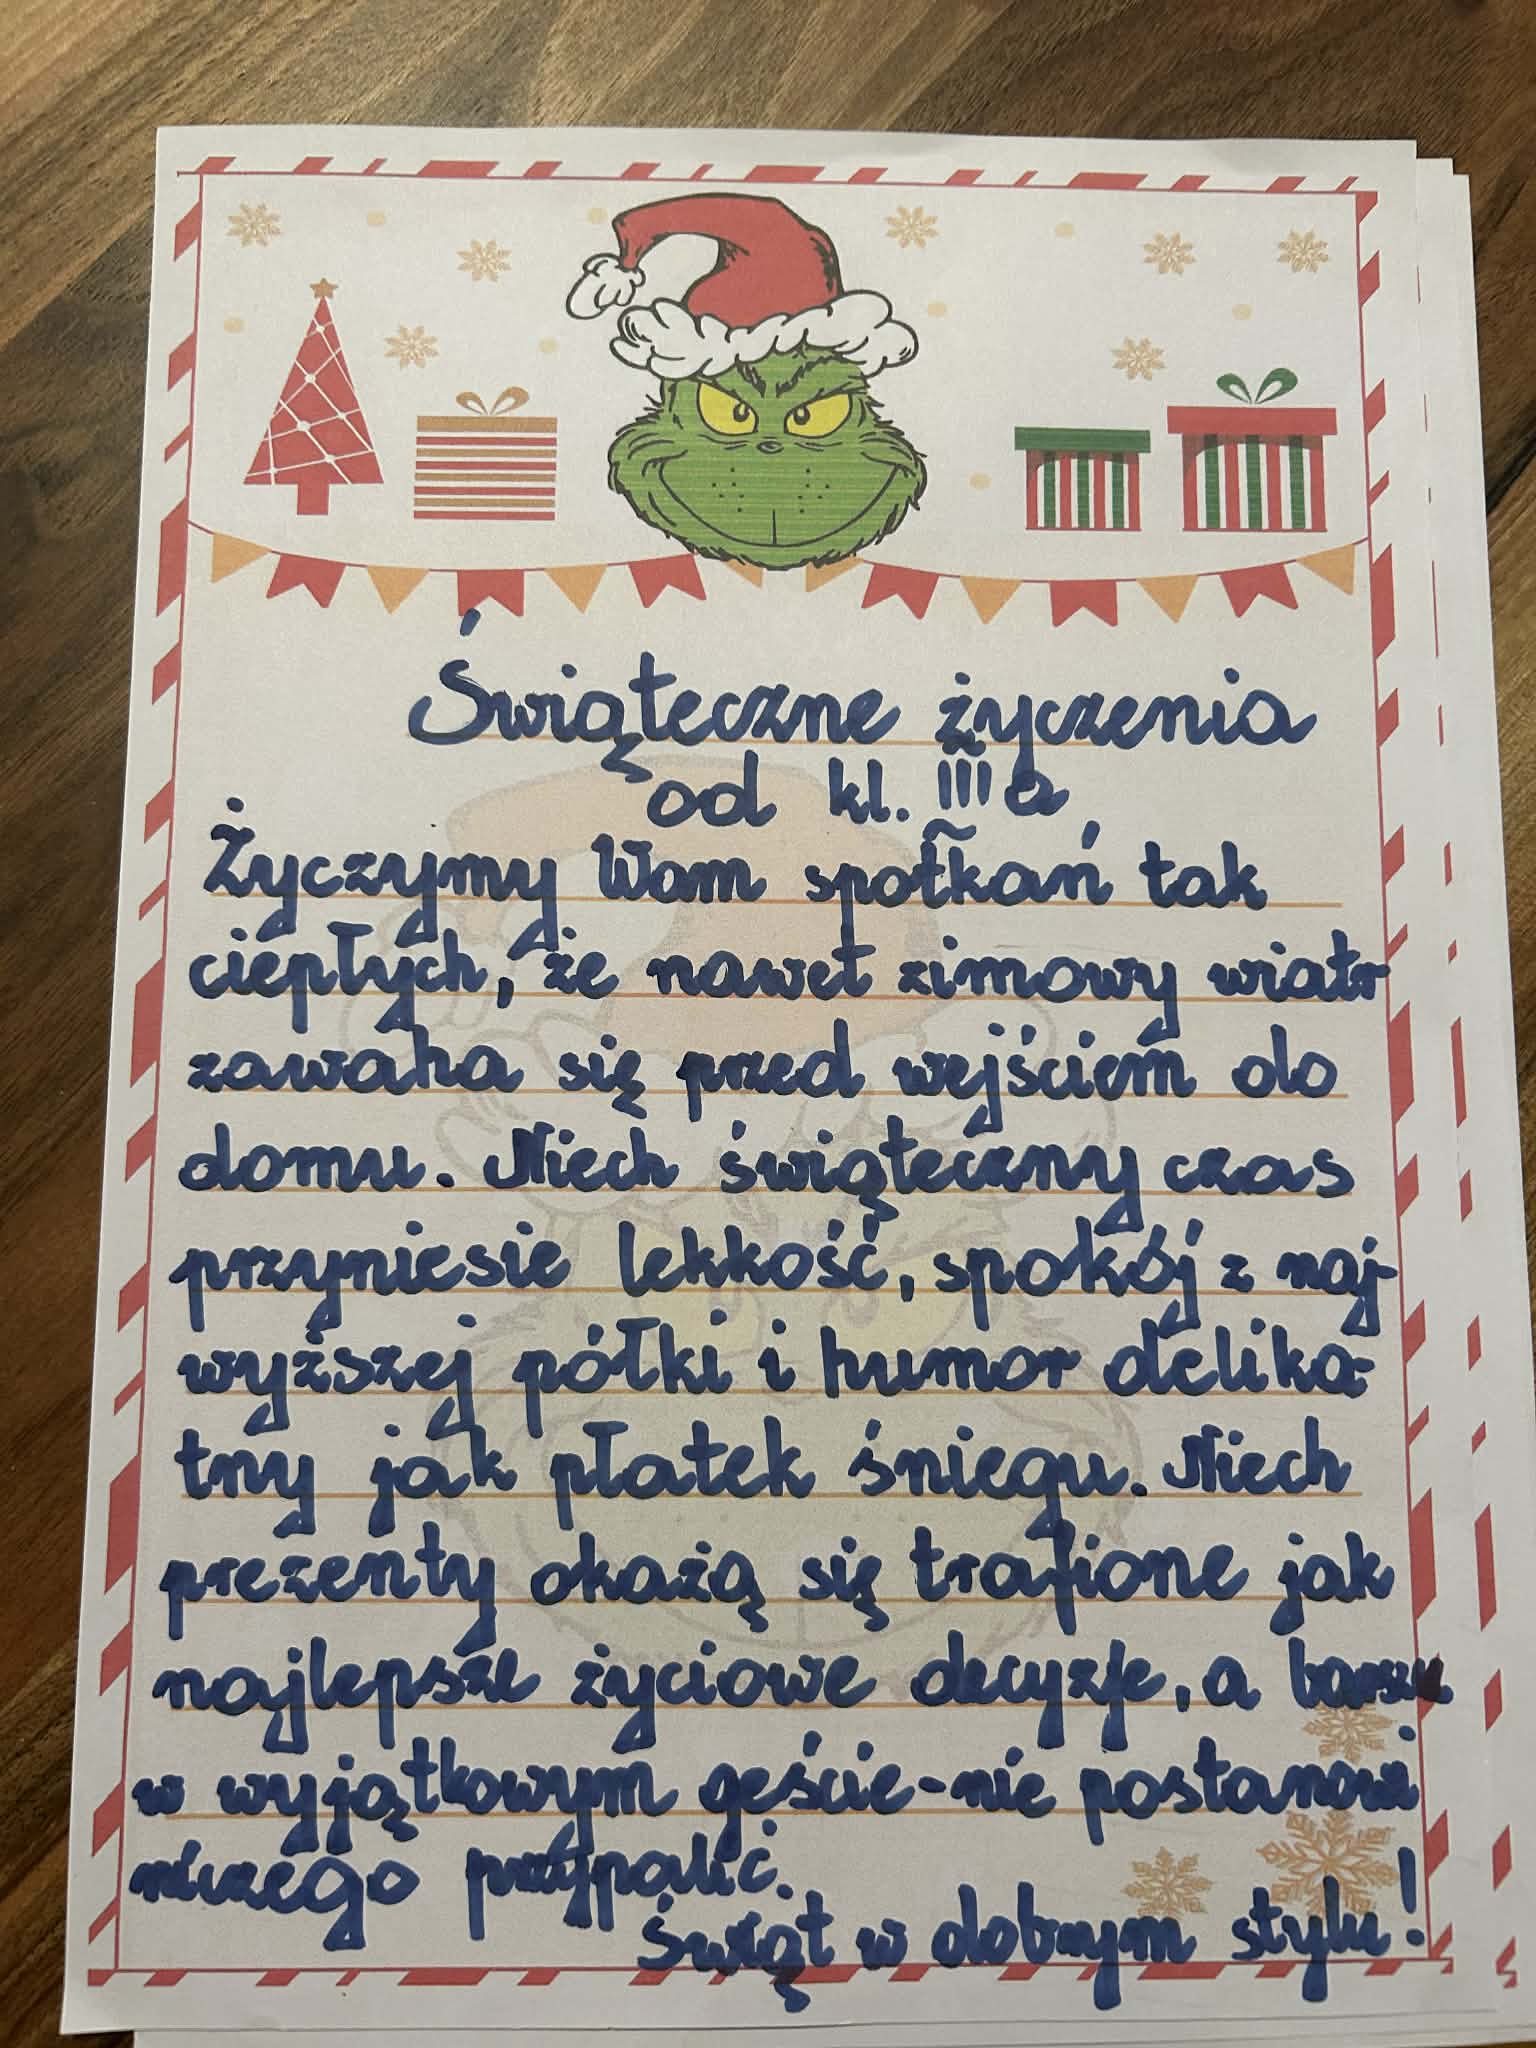 Świąteczne życzenia
od kl. III a
Życzymy Wam spotkań tak
ciepłych, że nawet zimowy wiatr
zawaha się przed wejściem do
domu. Niech świąteczny czas
przyniesie lekkość, spokój z naj-
wyższej półki i humor delika-
tny jak płatek śniegu. Niech
prezenty okażą się trafione jak
najlepsze życiowe decyzje, a barszcz
w wyjątkowym geście-nie postanowi
niczego przypalić.
Świąt w dobrym stylu!